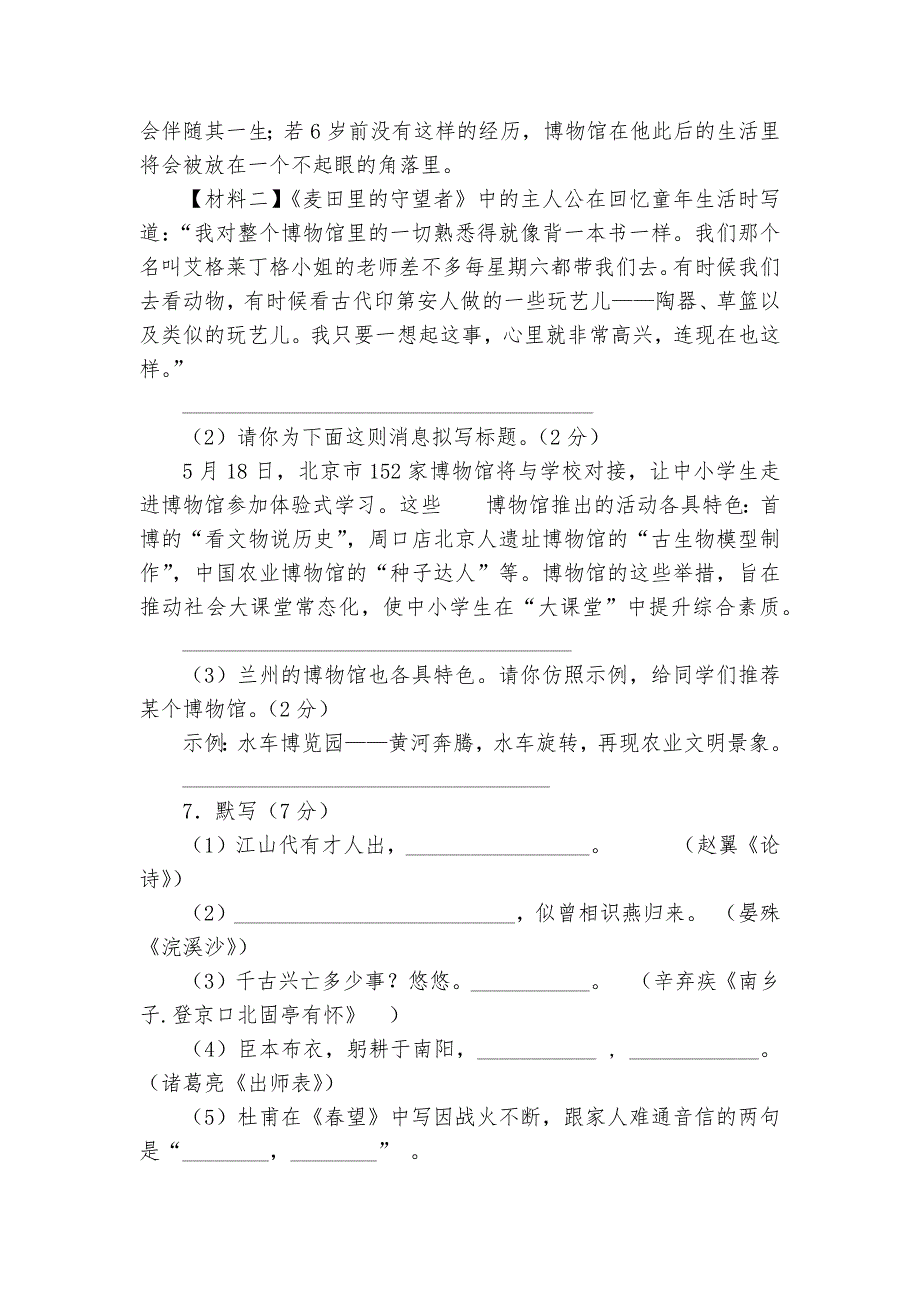 会伴随其一生；若 6 岁前没有这样的经历，博物馆在他此后的生活里
将会被放在一个不起眼的角落里。
【材料二】《麦田里的守望者》中的主人公在回忆童年生活时写
道：“我对整个博物馆里的一切熟悉得就像背一本书一样。我们那个
名叫艾格莱丁格小姐的老师差不多每星期六都带我们去。有时候我们
去看动物，有时候看古代印第安人做的一些玩艺儿——陶器、草篮以
及类似的玩艺儿。我只要一想起这事，心里就非常高兴，连现在也这
样。”
______________________________________
（2）请你为下面这则消息拟写标题。（2 分）
5 月 18 日，北京市 152 家博物馆将与学校对接，让中小学生走
进博物馆参加体验式学习。这些　　博物馆推出的活动各具特色：首
博的“看文物说历史”，周口店北京人遗址博物馆的“古生物模型制
作”，中国农业博物馆的“种子达人”等。博物馆的这些举措，旨在
推动社会大课堂常态化，使中小学生在“大课堂”中提升综合素质。
____________________________________
（3）兰州的博物馆也各具特色。请你仿照示例，给同学们推荐
某个博物馆。（2 分）
示例：水车博览园——黄河奔腾，水车旋转，再现农业文明景象。
__________________________________
7．默写（7 分）
（1）江山代有才人出，_________________。　　　（赵翼《论
诗》）
（2）__________________________，似曾相识燕归来。 （晏殊
《浣溪沙》）
（3）千古兴亡多少事？悠悠。___________。　（辛弃疾《南乡
子.登京口北固亭有怀》　）
（4）臣本布衣，躬耕于南阳，___________ ，____________。
（诸葛亮《出师表》）
（5）杜甫在《春望》中写因战火不断，跟家人难通音信的两句
是“________，________” 。